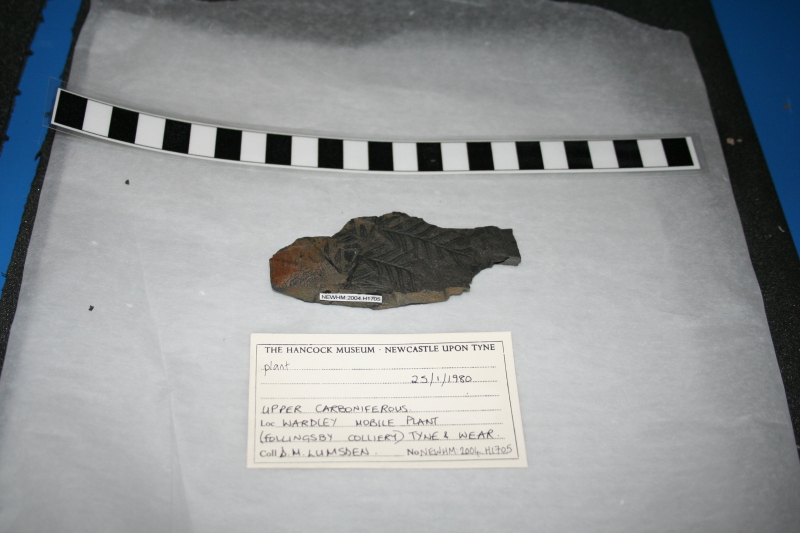 NEWHM:2004.H1705
THE HANCOCK MUSEUM · NEWCASTLE UPON TYNE
plant
25/1/1980
UPPER CARBONIFEROUS.
Loc WARDLEY MOBILE PLANT
(FOLLINGSBY COLLIERY) TYNE & WEAR.
Coll D.M. LUMSDEN. No NEWHM:2004.H1705